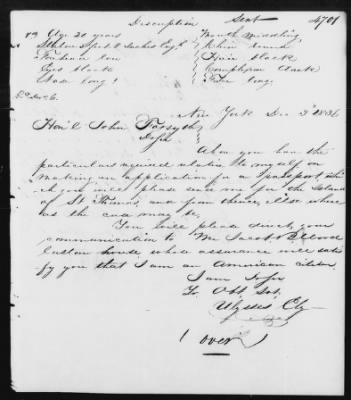 Description Sent 4701
Age 20 years Mouth middling
Stature 5 feet 8 inches Eng. Chin round
Forehead low Hair black
Eyes black Complexion dark
Nose long Face long
New York Dec 3d 1836
Honl. John Forsyth
Sir
Above you have the
particulars required relative to myself on
making an application for a passport which
you will please send me for the Island
of St Thomas and from thence, elsewhere
as the case may be.
You will please direct your
communication to Mr Jacob
Custom house whose assurance will satisfy
you that I am an American citizen.
I am Sir
Yr Obt Svt.
Ulysses Ely
(over)